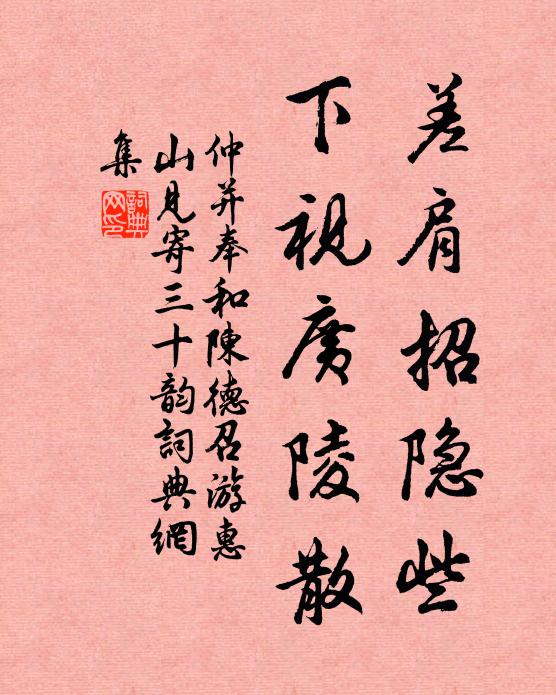 差肩招隐些
下视廣陵散
仲并奉和陳德召游惠
山見寄三十韵詞典網
集
詞典网印